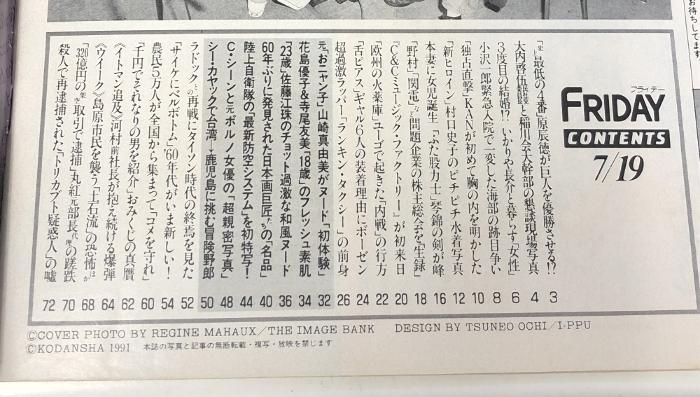 お待ちしてます
フライデー
FRIDAY
CONTENTS
7/19
「史上最低の4番」原辰徳が巨人を優勝させる!? 3
大内啓伍議員と稲川会大幹部の懇談現場写真 4
3度目の結婚!? いかりや長介と暮らす「女性」 6
小沢一郎緊急入院で一変した海部の跡目争い 8
「独占直撃」KANが初めて胸の内を明かした 10
「新ヒロイン」村田史子のピチピチ水着写真 12
本妻に女児誕生「ふた股力士」琴錦の剣が峰 16
「野村」「関電」…問題企業の株主総会を「生録」 18
「C&Cミュージック・ファクトリー」が初来日 20
「欧州の火薬庫」ユーゴで起きた「内戦」の行方 22
「舌ピアス」ギャル6人の装着理由にボーゼン 24
超過激ラッパー「ランキン・タクシー」の前身 26
元「おニャン子」山崎真由美がヌード「初体験」 32
花島優子&寺尾友美「18歳」のフレッシュ素肌 34
「23歳」佐藤江珠のチョット過激な和風ヌード 36
60年ぶりに発見された日本画巨匠たちの「名品」 40
陸上自衛隊の「最新防空システム」を初特写! 44
C・シーンと元ポルノ女優の「超親密写真」 48
シー・カヤックで台湾→鹿児島に挑む冒険野郎 50
ラドックとの再戦にタイソン時代の終焉を見た 52
「サイケにベルボトム」'60年代がいま新しい! 54
農民5万人が全国から集まって「コメを守れ」 60
「千円でそれなりの男を紹介」おみくじの真贋 62
《イトマン追及》河村前社長が抱え続ける爆弾 64
《ウイーク》島原市民を襲う「土石流」の恐怖ほか 68
「320億円の架空取引」で逮捕「丸紅」元部長代理の蹉跌 70
殺人で再逮捕された「トリカブト疑惑人」の嘘 72
©COVER PHOTO BY REGINE MAHAUX/THE IMAGE BANK DESIGN BY TSUNEO OCHI/I-PPU
©KODANSHA 1991 本誌の写真と記事の無断転載・複写・放映を禁じます